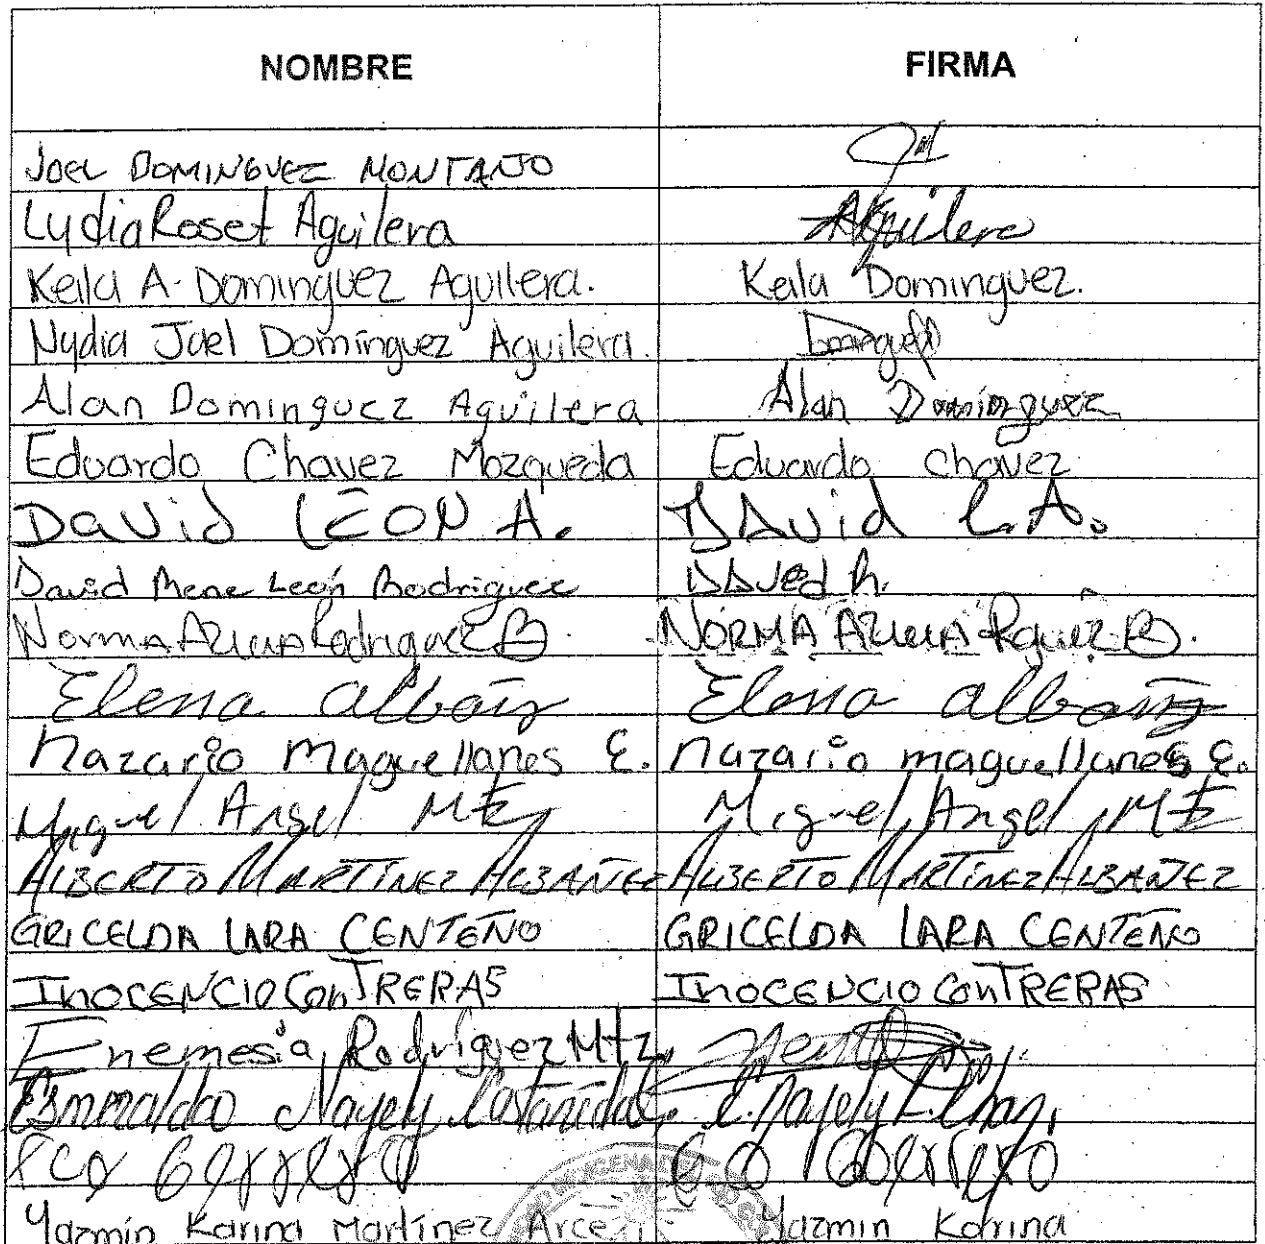 NOMBRE FIRMA
JOEL DOMINGUEZ MONTAÑO
Lydia Roset Aguilera Aguilera
Keila A. Dominguez Aguilera. Keila Dominguez.
Nydia Jael Domínguez Aguilera.
Alan Dominguez Aguilera Alan Dominguez
Eduardo Chavez Mozqueda Eduardo chavez
David LEON A. DAvid L.A.
David Rene León Rodriguez DAved R.
Norma Azucena Rodriguez B. NORMA AZucenA Rguez B.
Elena albañez Elena albañez
Nazario Maguellanes E. nazario maguellanes E.
Miguel Angel MTZ Miguel Angel MTZ
ALBERTO MARTÍNEZ ALBAÑEZ ALBERTO MARTÍNEZ ALBAÑEZ
GRICELDA LARA CENTEÑO GRICELDA LARA CENTEÑO
INOCENCIO CONTRERAS INOCENCIO CONTRERAS
Enemesia Rodríguez Mtz.
Esmeralda Nayely Castañeda E. Nayely
Fco Gerrero Guerrero
Yazmín Karina Martínez Arce Yazmin Karina